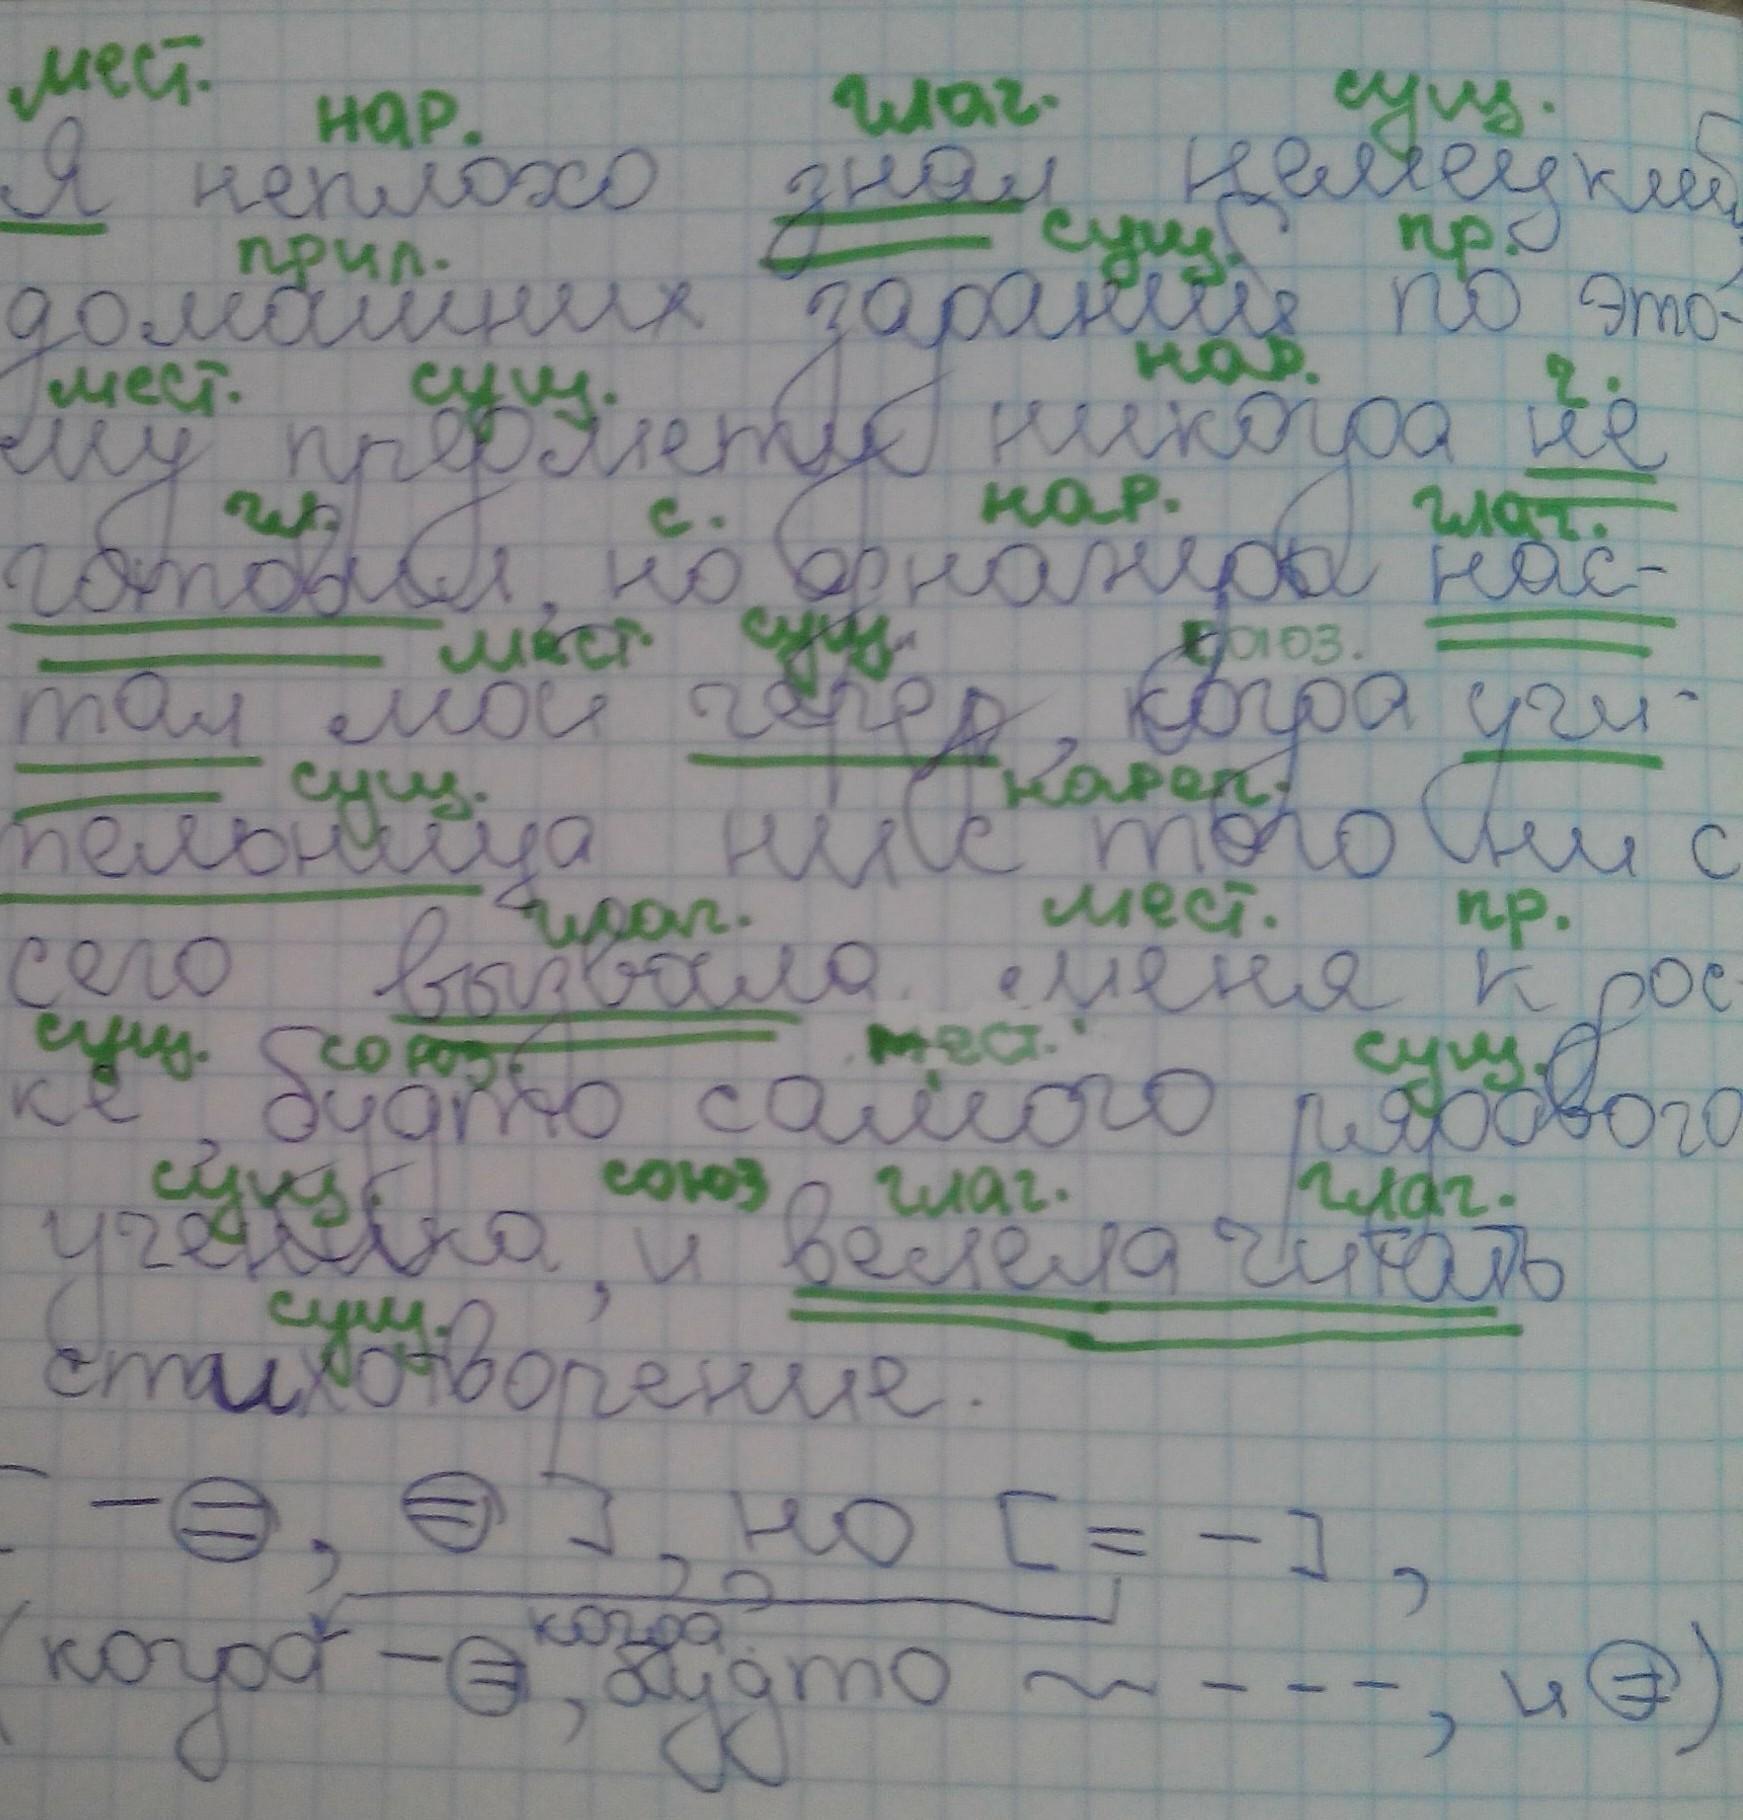 мест. нар. глаг. сущ.
Я неплохо знал немецкий,
прил. сущ. пр.
домашних заданий по это-
мест. сущ. нар. ч.
му предмету никогда не
гл. с. нар. глаг.
готовил, но однажды нас-
мест. сущ. союз.
тал мой черед, когда учи-
сущ. нареч.
тельница ни с того ни с
глаг. мест. пр.
сего вызвала меня к дос-
сущ. союз. мест. сущ.
ке, будто самого рядового
сущ. союз глаг. глаг.
ученика, и велела читать
сущ.
стихотворение.
[ - =, = ], но [ = - ],
когда
(когда - =, будто ~ - - -, и =)